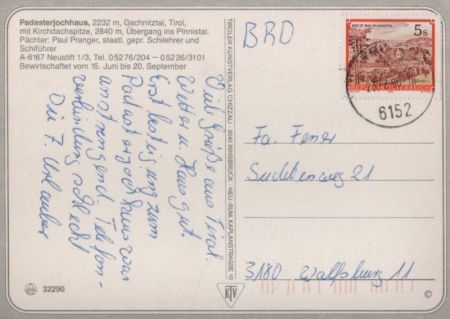 Padasterjochhaus, 2232 m, Gschnitztal, Tirol,
mit Kirchdachspitze, 2840 m, Übergang ins Pinnistal.
Pächter: Paul Pranger, staatl. gepr. Schilehrer und
Schiführer
A-6167 Neustift 1/3, Tel. 05276/204 - 05226/3101
Bewirtschaftet vom 15. Juni bis 20. September
Viele Grüße aus Tirol.
Wetter u. Haus gut.
Erstbesteigung zum
Padasterjochhaus war
anstrengend. Telefon-
verbindung schlecht
Die 7. Urlauber
32290
TIROLER KUNSTVERLAG CHIZZALI · 6040 INNSBRUCK · NEU-RUM, KAPLANSTRASSE 10
KTV
BRD
5s
REPUBLIK ÖSTERREICH
6152
Fa.
Sudetenweg 21
3180 Wolfsburg 11
©